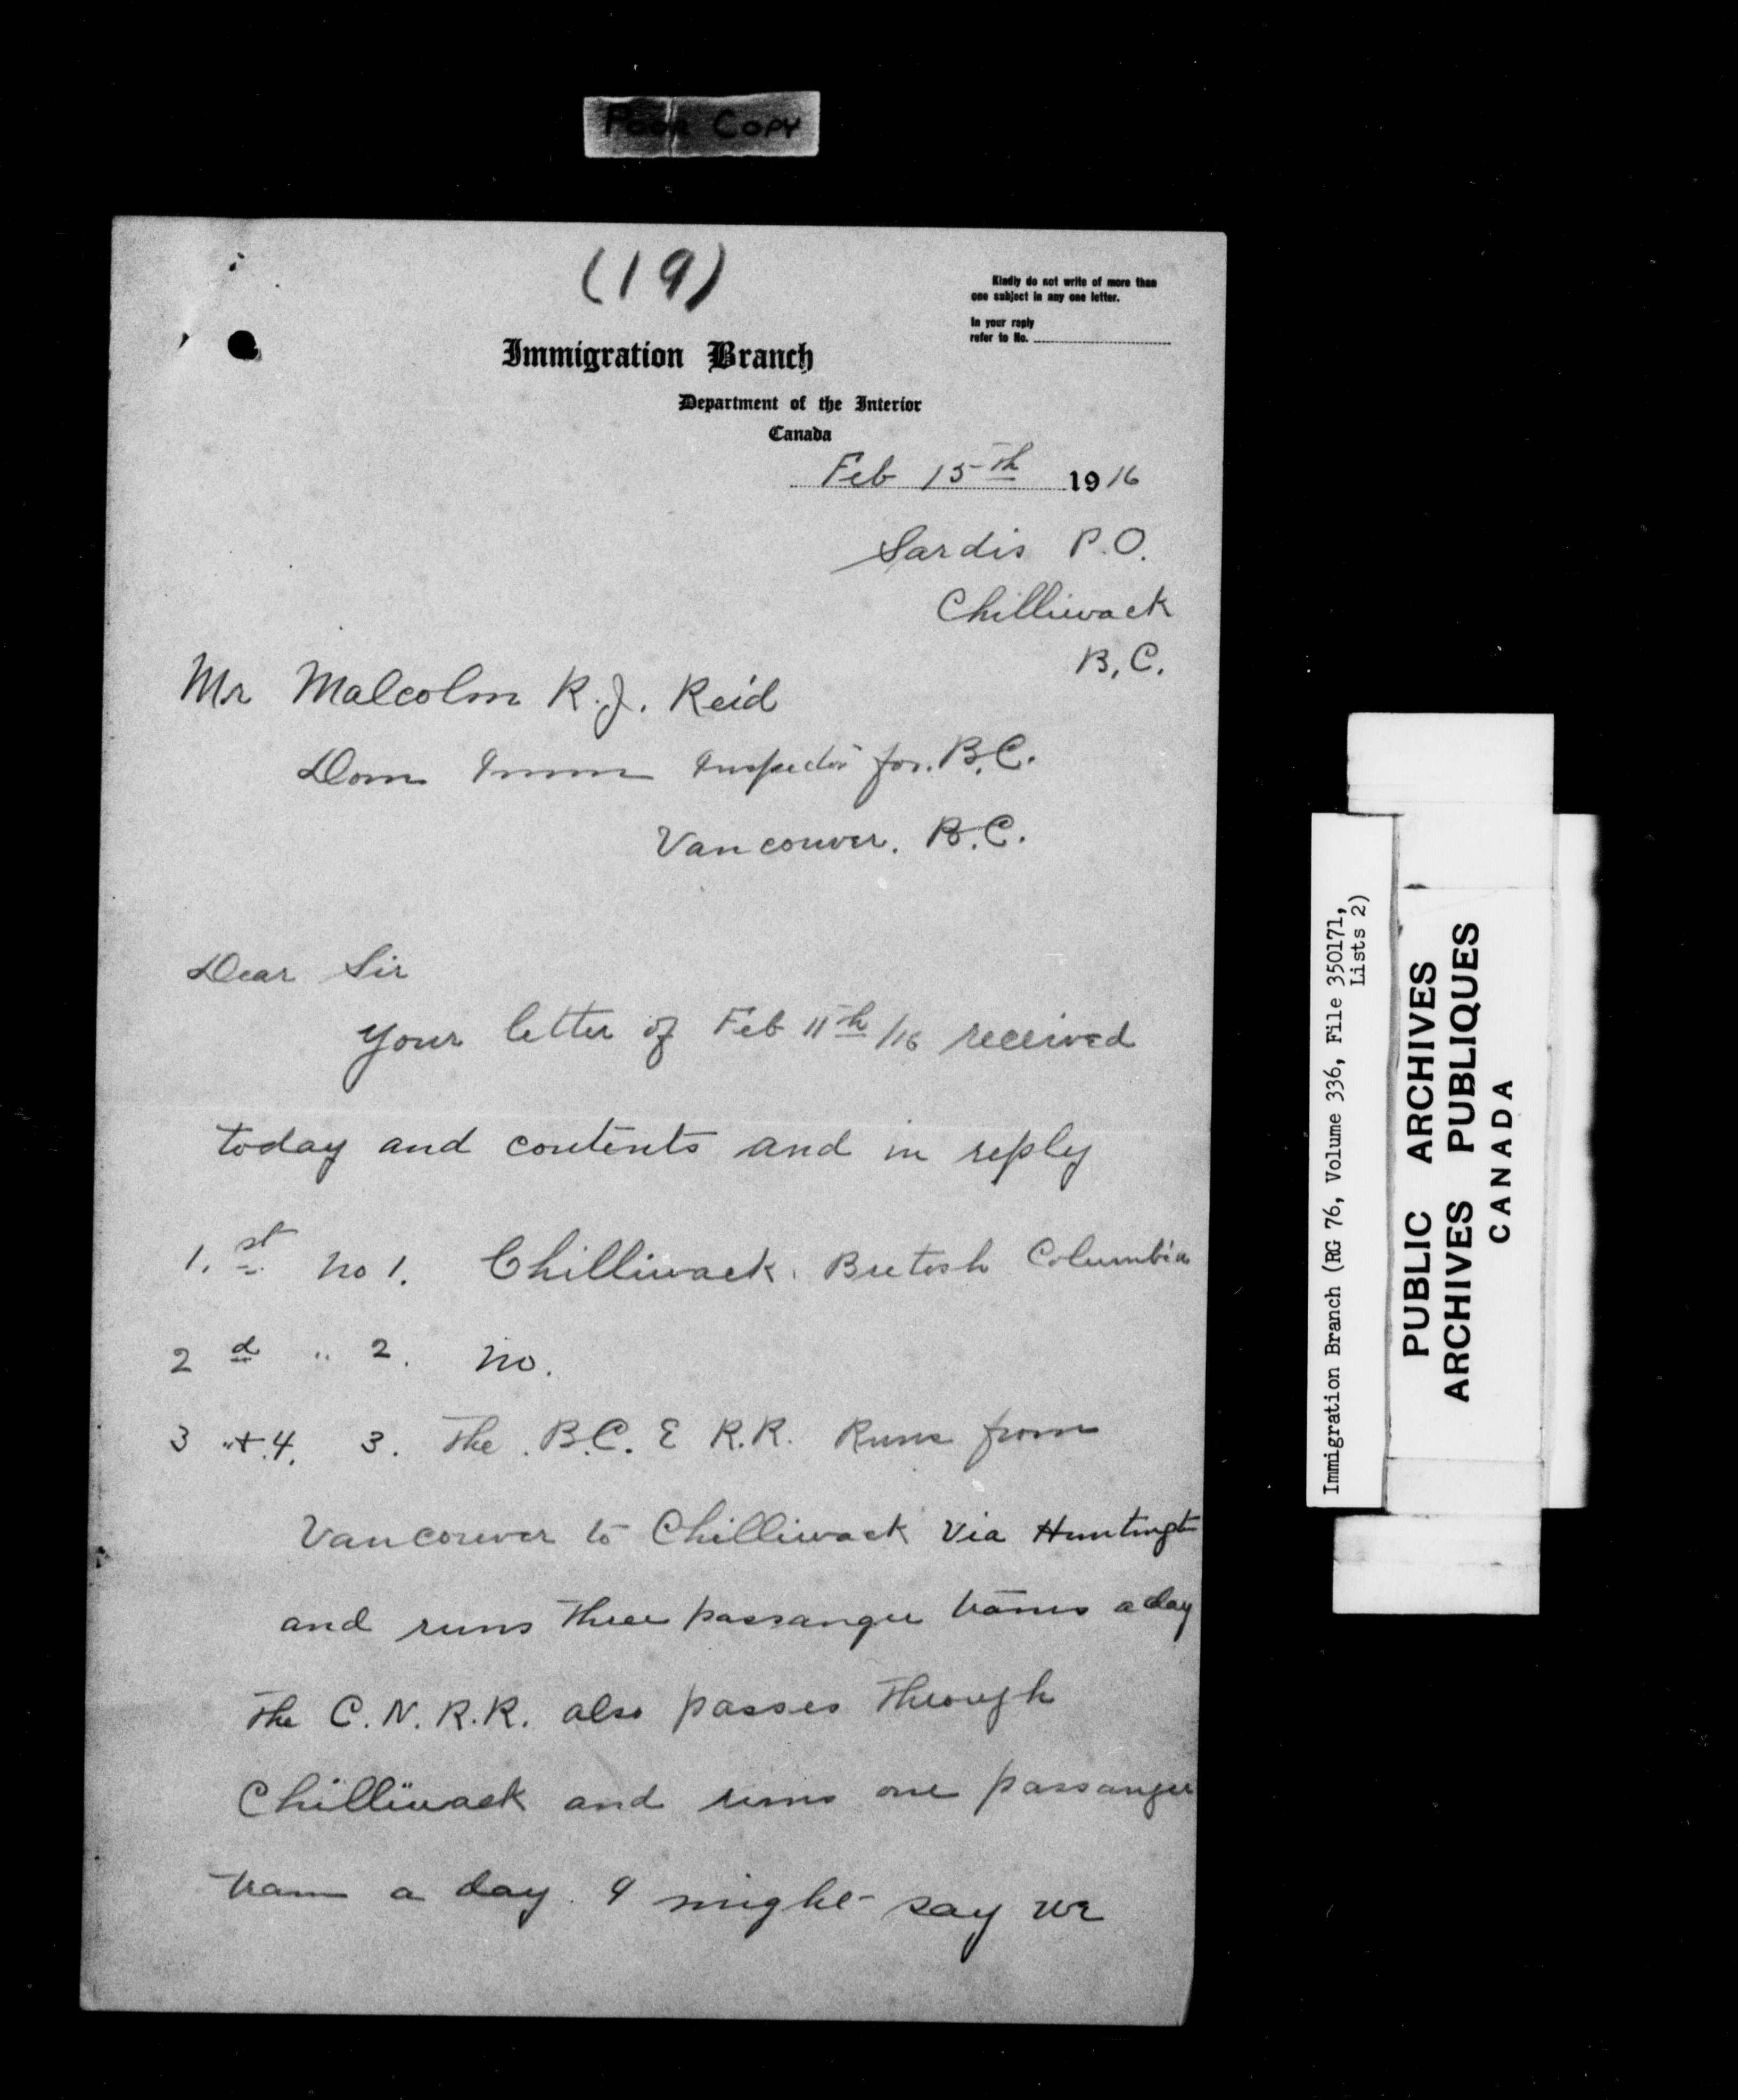 Poor Copy
(19)
Kindly do not write of more than
one subject in any one letter.
In your reply
refer to No.
Immigration Branch
Department of the Interior
Canada
Feb 15th 1916
Sardis P.O.
Chilliwack
B.C.
Mr Malcolm R.J. Reid
Dom Imm Inspector for. B.C.
Vancouver. B.C.
Dear Sir
Your letter of Feb 11th/16 received
today and contents and in reply
1.st No 1. Chilliwack. British Columbia
2d " 2. No.
3 " + 4. 3. The B.C. E R.R. Runs from
Vancouver to Chilliwack Via Huntingt
and runs three passanger trains a day
The C.N.R.R. also passes through
Chilliwack and runs one passanger
train a day. I might say we
Immigration Branch (RG 76, Volume 336, File 350171,
Lists 2)
PUBLIC ARCHIVES
ARCHIVES PUBLIQUES
CANADA